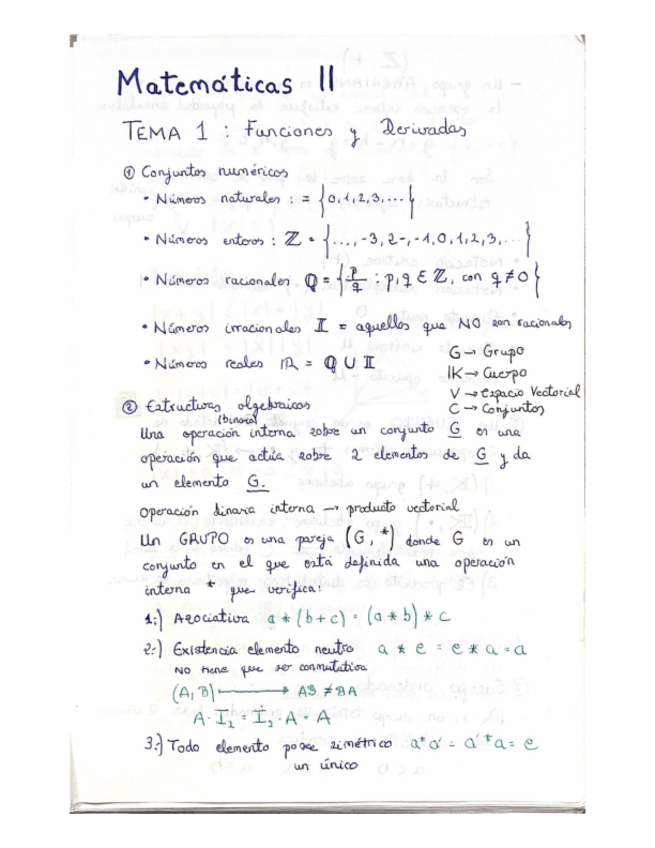 Matemáticas II
TEMA 1 : Funciones y Derivadas
① Conjuntos numéricos
• Números naturales : = {0,1,2,3,...}
• Números enteros : ℤ = {..., -3, 2-, -1, 0, 1, 2, 3, ...}
• Números racionales ℚ = {p/q : p,q ∈ ℤ, con q ≠ 0}
• Números irracionales 𝕀 = aquellos que NO son racionales
• Números reales ℝ = ℚ ∪ 𝕀
G → Grupo
𝕂 → Cuerpo
V → Espacio Vectorial
C → Conjuntos
② Estructuras algebraicas
(binaria)
Una operación interna sobre un conjunto G es una
operación que actúa sobre 2 elementos de G y da
un elemento G.
Operación binaria interna → producto vectorial
Un GRUPO es una pareja (G, *) donde G es un
conjunto en el que está definida una operación
interna * que verifica:
1.) Asociativa a * (b + c) = (a * b) * c
2.) Existencia elemento neutro a * e = e * a = a
NO tiene que ser conmutativa
(A, B) → AB ≠ BA
A · I₂ = I₂ · A = A
3.) Todo elemento posee simétrico a * a' = a' * a = e
un único